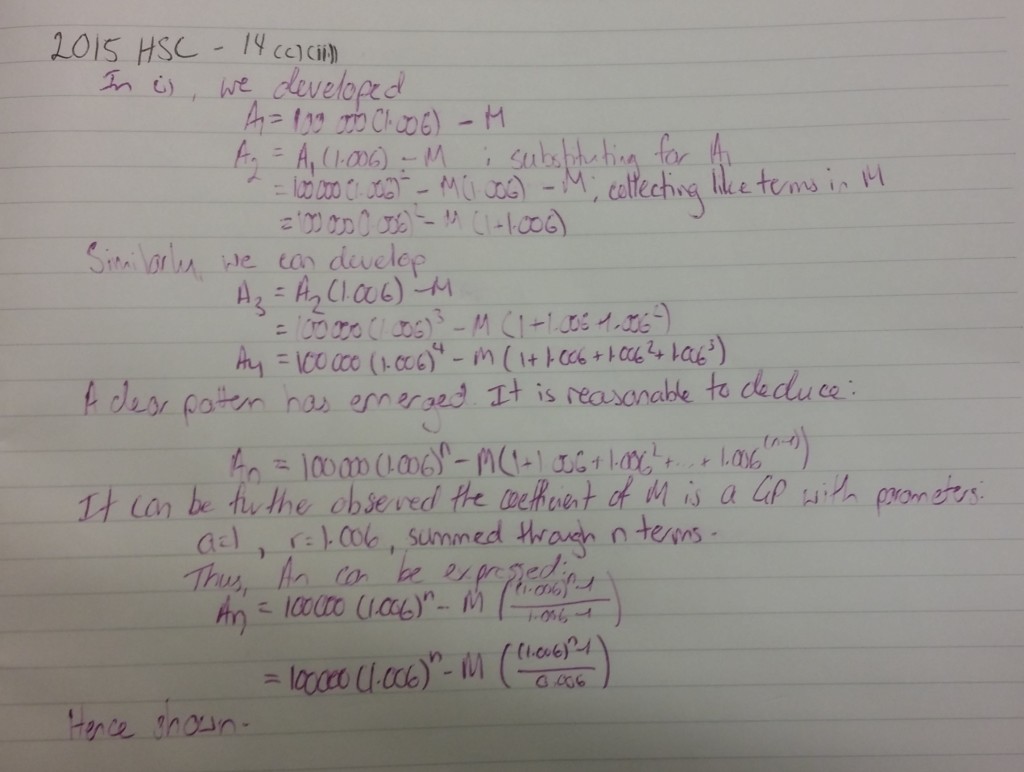 2015 HSC - 14 (c)(ii)
In (i), we developed
A₁ = 100 000(1.006) - M
A₂ = A₁(1.006) - M ; substituting for A₁
= 100000(1.006)² - M(1.006) - M; collecting like terms in M
= 100000(1.006)² - M (1+1.006)
Similarly we can develop
A₃ = A₂(1.006) - M
= 100000(1.006)³ - M(1+1.006+1.006²)
A₄ = 100000(1.006)⁴ - M(1+1.006+1.006²+1.006³)
A clear pattern has emerged. It is reasonable to deduce:
Aₙ = 100000(1.006)ⁿ - M(1+1.006+1.006²+...+1.006⁽ⁿ⁻¹⁾)
It can be further observed the coefficient of M is a GP with parameters:
a=1, r=1.006, summed through n terms.
Thus, An can be expressed:
Aₙ = 100000(1.006)ⁿ - M(((1.006)ⁿ-1)/(1.006-1))
= 100000(1.006)ⁿ - M(((1.006)ⁿ-1)/0.006)
Hence shown.